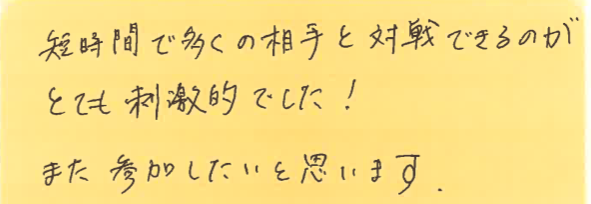 短時間で多くの相手と対戦できるのが
とても刺激的でした！
また参加したいと思います.